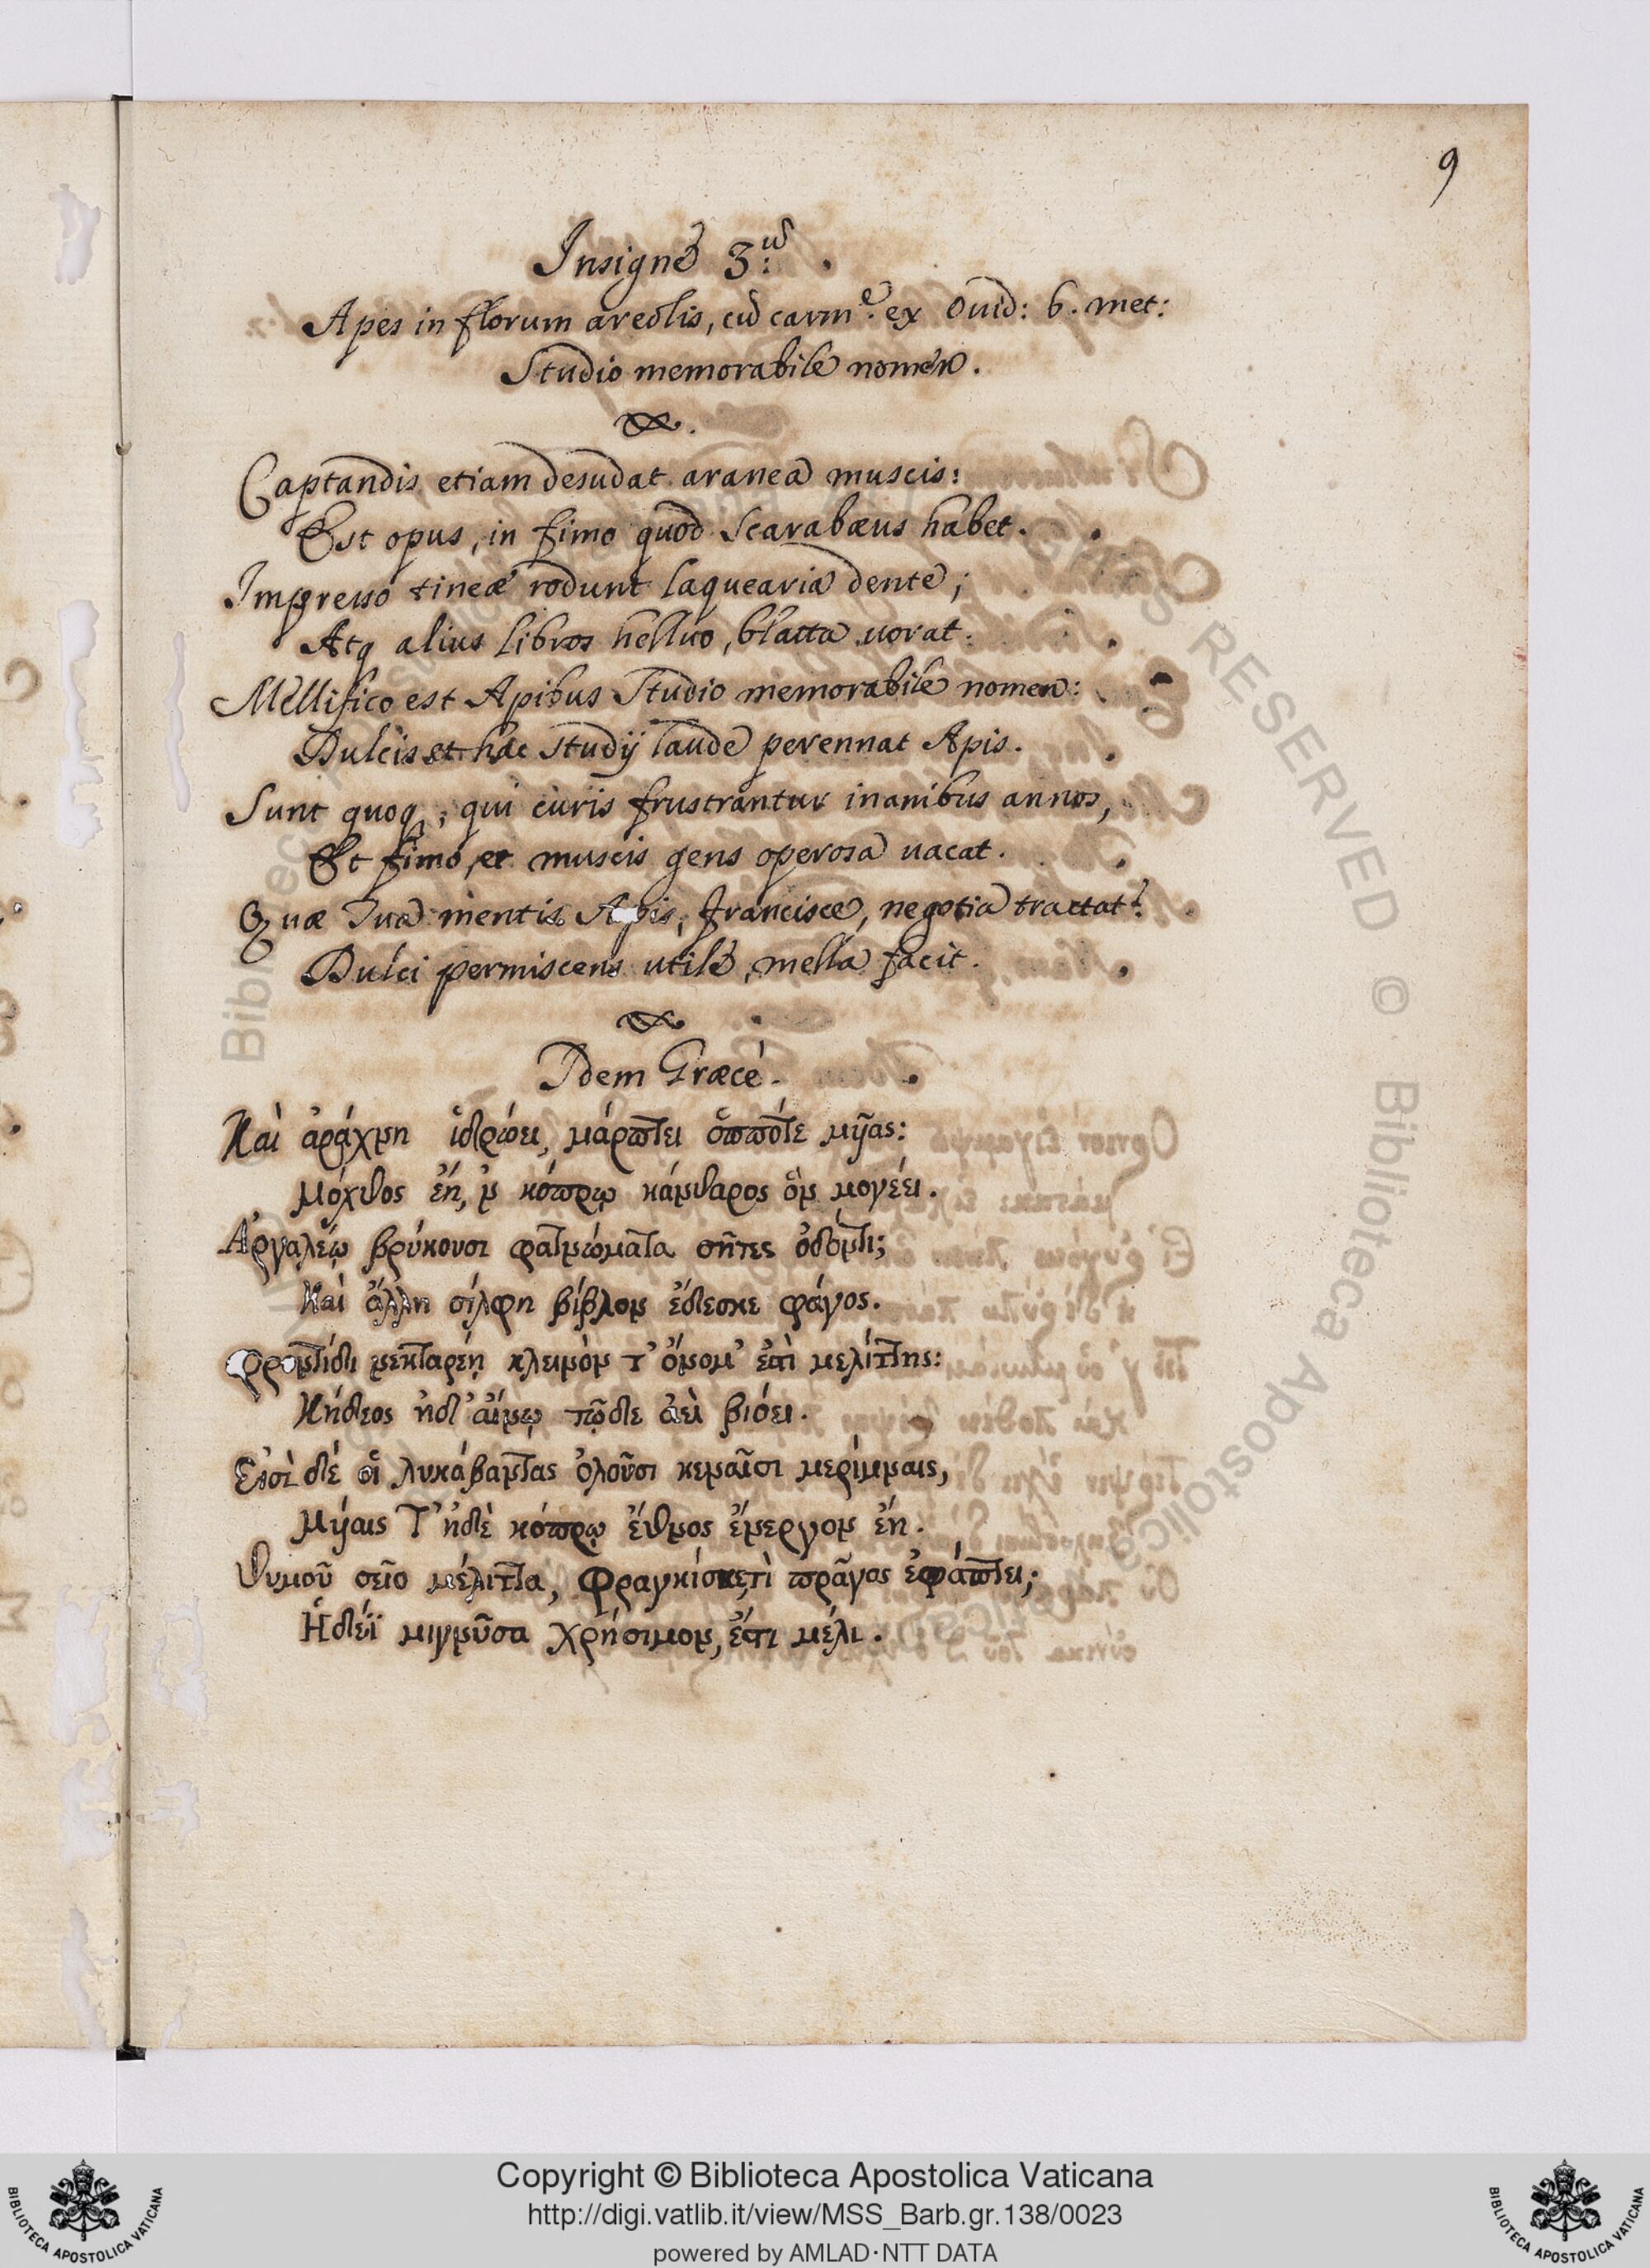 9
Insigne 3.um
Apes in florum areolis, cū carm.e ex Ouid: 6. met:
Studio memorabile nomen.
Captandis etiam desudat aranea muscis:
Est opus, in fimo quod Scarabæus habet.
Impresso tineæ rodunt laquearia dente;
Atq alius libros helluo, blatta uorat.
Mellifico est Apibus Studio memorabile nomen:
Dulcis et hac studij laude perennat Apis.
Sunt quoq, qui curis frustrantur inanibus annos,
Et fimo, et muscis gens operosa uacat.
Quæ Tua mentis Apis, Francisce, negotia tractat?
Dulci permiscens utile, mella facit.
Idem Græcè.
Καὶ ἀράχνη ἱδρώει, μάρπτει ὁππότε μύας:
Μόχθος ἔη, ἐν κόπρῳ κάνθαρος ὃν μογέει.
Ἀργαλέῳ βρύκουσι φατνώματα σῆτες ὀδόντι;
Καὶ ἄλλη σίλφη βίβλον ἔδεσκε φάγος.
Φροντίδι νεκταρέῃ κλεινὸν τ' ὄνομ' ἐστὶ μελίττης:
Κήδεος ἠδ' αἴνῳ τῷδε ἀεὶ βιόει.
Εἰσὶ δέ οἳ λυκάβαντας ὀλοῦσι κεναῖσι μερίμναις,
Μύαις τ' ἠδὲ κόπρῳ ἔθνος ἔνεργον ἔη.
Θυμοῦ σεῖο μέλιττα, Φραγκίσκε, τὶ πρᾶγος ἐφάπτει;
Ἡδέϊ μιγνῦσα χρήσιμον, ἔστι μέλι.
Copyright © Biblioteca Apostolica Vaticana
http://digi.vatlib.it/view/MSS_Barb.gr.138/0023
powered by AMLAD·NTT DATA
BIBLIOTECA APOSTOLICA VATICANA
BIBLIOTECA APOSTOLICA VATICANA